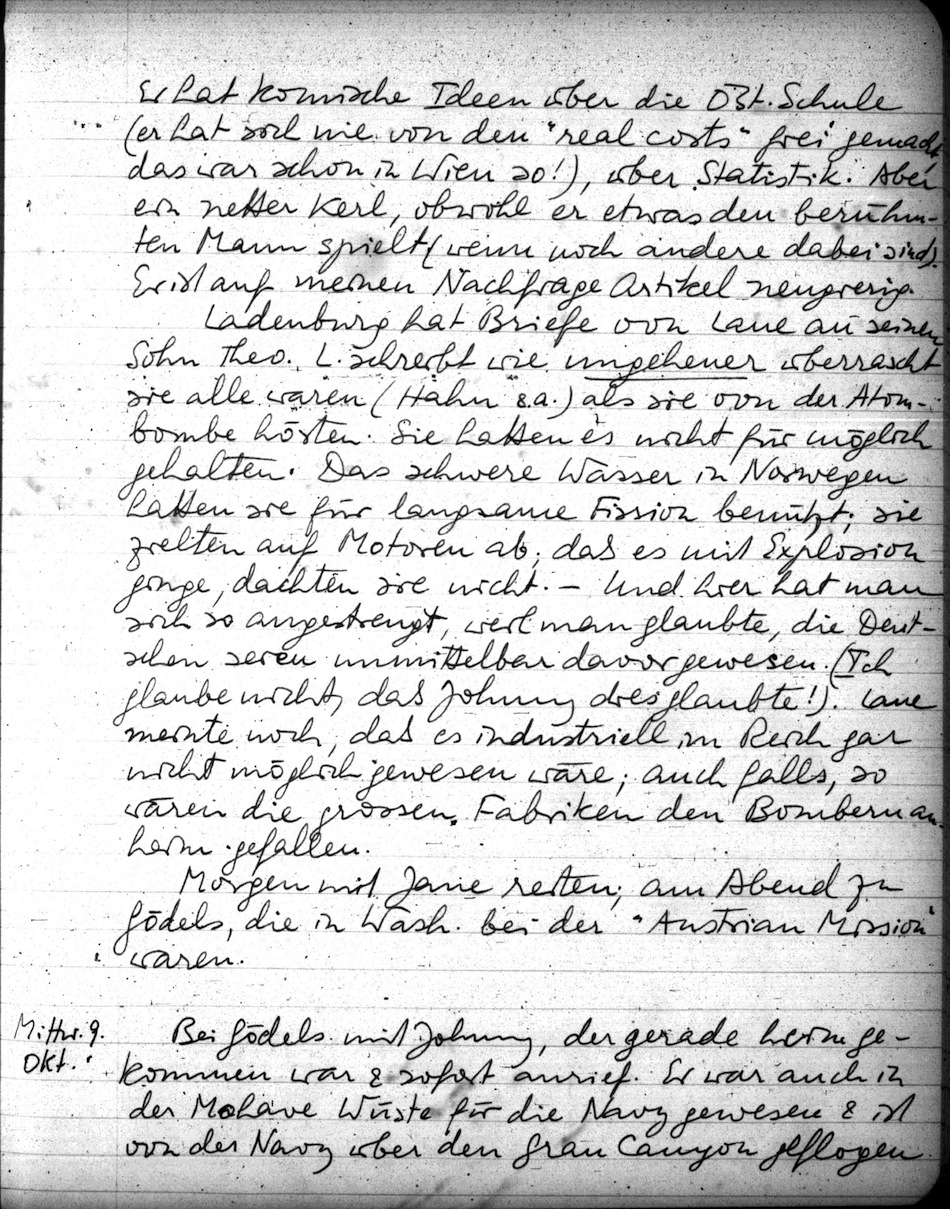 Er hat komische Ideen über die Öst. Schule
(er hat sich nie von den "real costs" frei gemacht
das war schon in Wien so!), über Statistik. Aber
ein netter Kerl, obwohl er etwas den berühm-
ten Mann spielt (wenn noch andere dabei sind).
Er ist auf meinen Nachfrage Artikel neugierig.
Ladenburg hat Briefe von Laue an seinen
Sohn Theo. L. schreibt wie ungeheuer überrascht
sie alle wären (Hahn & a.) als sie von der Atom-
bombe hörten. Sie hatten es nicht für möglich
gehalten. Das schwere Wasser in Norwegen
hatten sie für langsame Fission benützt; sie
zielten auf Motoren ab; daß es mit Explosion
ginge, dachten sie nicht. – Und hier hat man
sich so angestrengt, weil man glaubte, die Deut-
schen seien unmittelbar davor gewesen. (Ich
glaube nicht, daß Johnny dies glaubte!). Laue
meinte noch, daß es industriell im Reich gar
nicht möglich gewesen wäre; auch falls, so
wären die grossen Fabriken den Bombern an-
heim gefallen.
Morgen mit Jane reiten; am Abend zu
Gödels, die in Wash. bei der "Austrian Mission"
waren.
Mittw. 9.
Okt.
Bei Gödels mit Johnny, der gerade heimge-
kommen war & sofort anrief. Er war auch in
der Mohave Wüste für die Navy gewesen & ist
von der Navy über den Gran Canyon geflogen